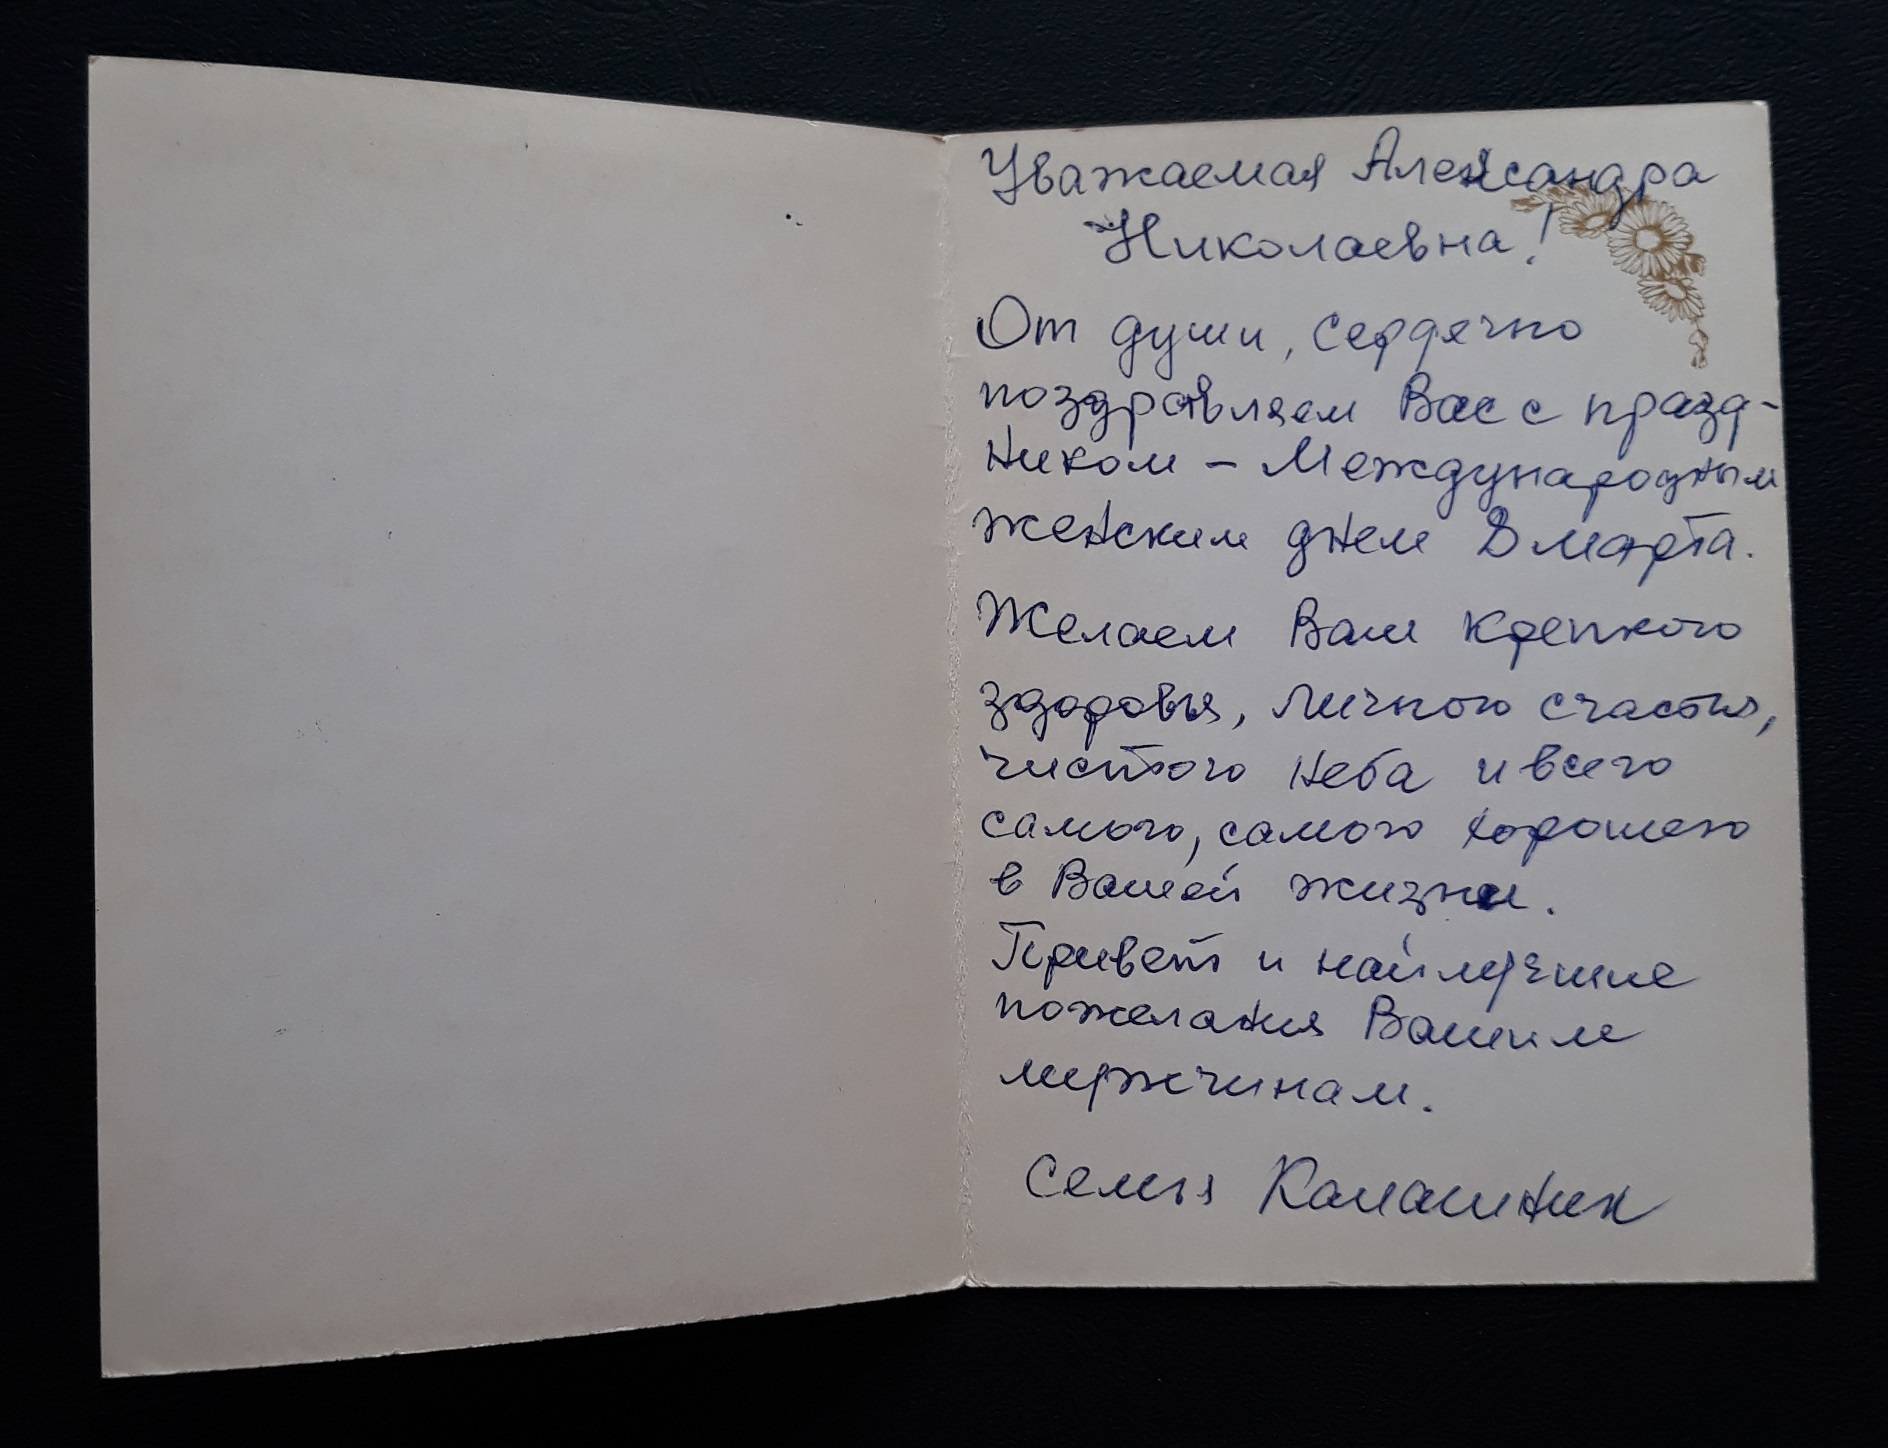 Уважаемая Александра
Николаевна!
От души, сердечно
поздравляем Вас с празд-
ником - Международным
женским днем 8 марта.
Желаем Вам крепкого
здоровья, личного счастья,
чистого неба и всего
самого, самого хорошего
в Вашей жизни.
Привет и наилучшие
пожелания Вашим
мужчинам.
Семья Калашник